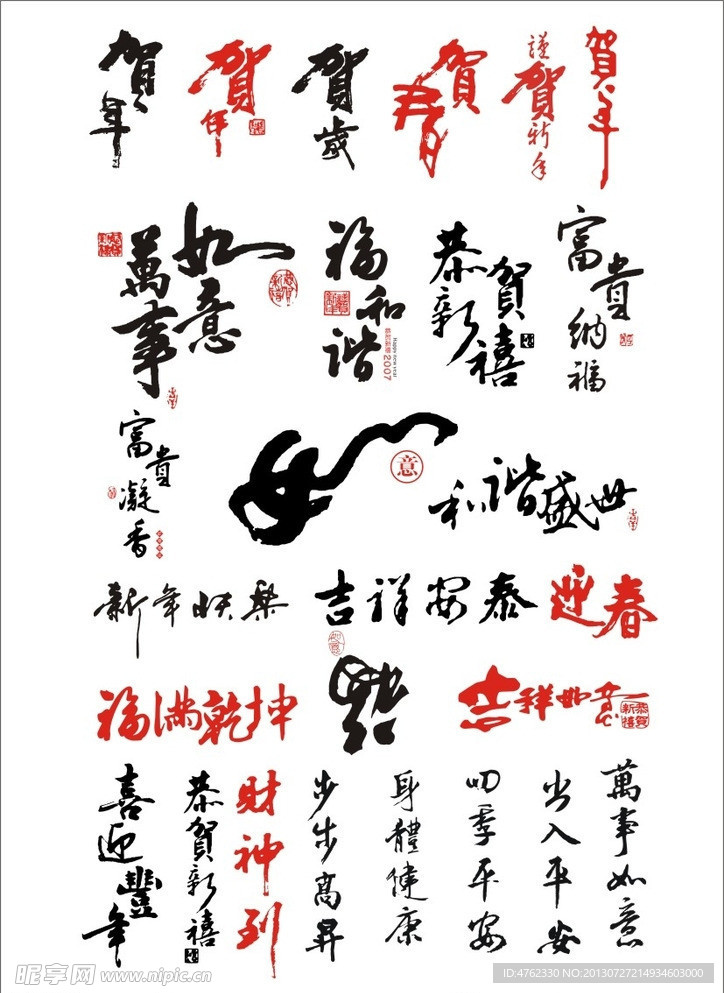 賀年
賀年
賀歲
賀
謹賀新年
賀年
萬事如意
福和谐
恭贺新禧
Happy new year
2007
恭新賀禧
富貴納福
富貴凝香
如
意
和谐盛世
新年快樂
吉祥安泰
迎春
福满乾坤
吉祥如意
恭賀新禧
喜迎豐年
恭賀新禧
財神到
步步高昇
身體健康
四季平安
出入平安
萬事如意
昵享网 www.nipic.cn
ID:4762330 NO:20130727214934603000